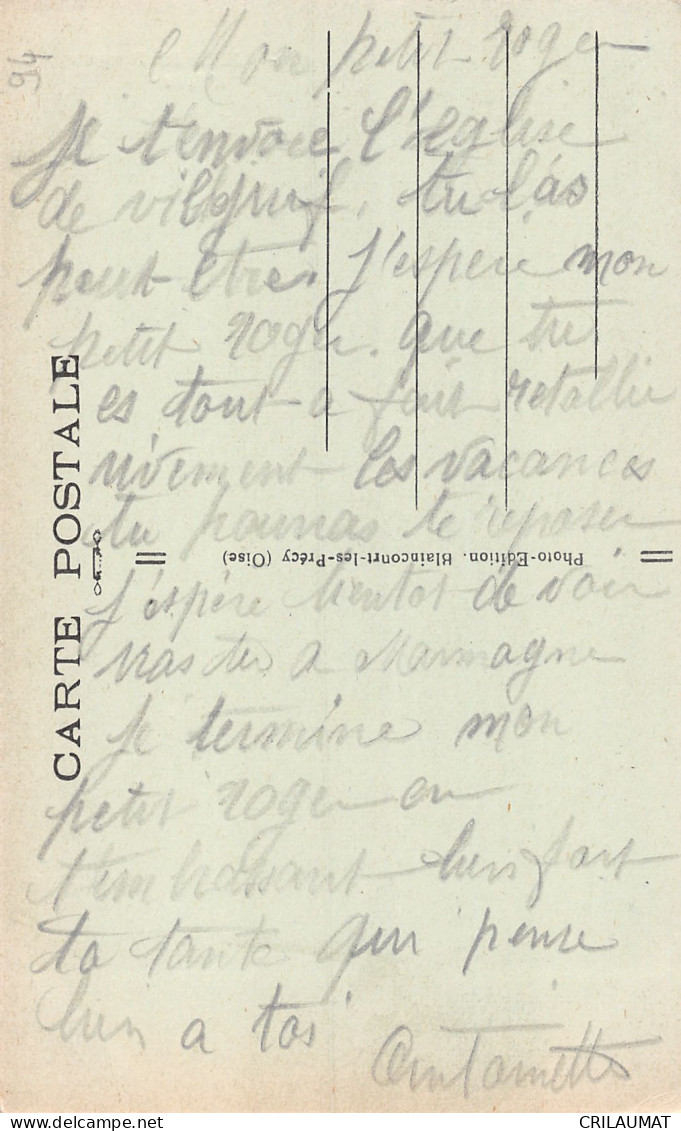 94
Mon petit roger
je t'envoie l'eglise
de viléjuif, tu l'as
peut etre. J'espere mon
petit roger. que tu
es tout a fait retablie
vivement les vacances
tu pourras te reposer
j'espère bientot de voir
a Marmagne
je termine mon
petit roger en
t'embrassant bien fort
ta tante qui pense
bien a toi
Antoinette
CARTE POSTALE
Photo-Edition. Blaincourt-les-Précy (Oise)
CRILAUMAT